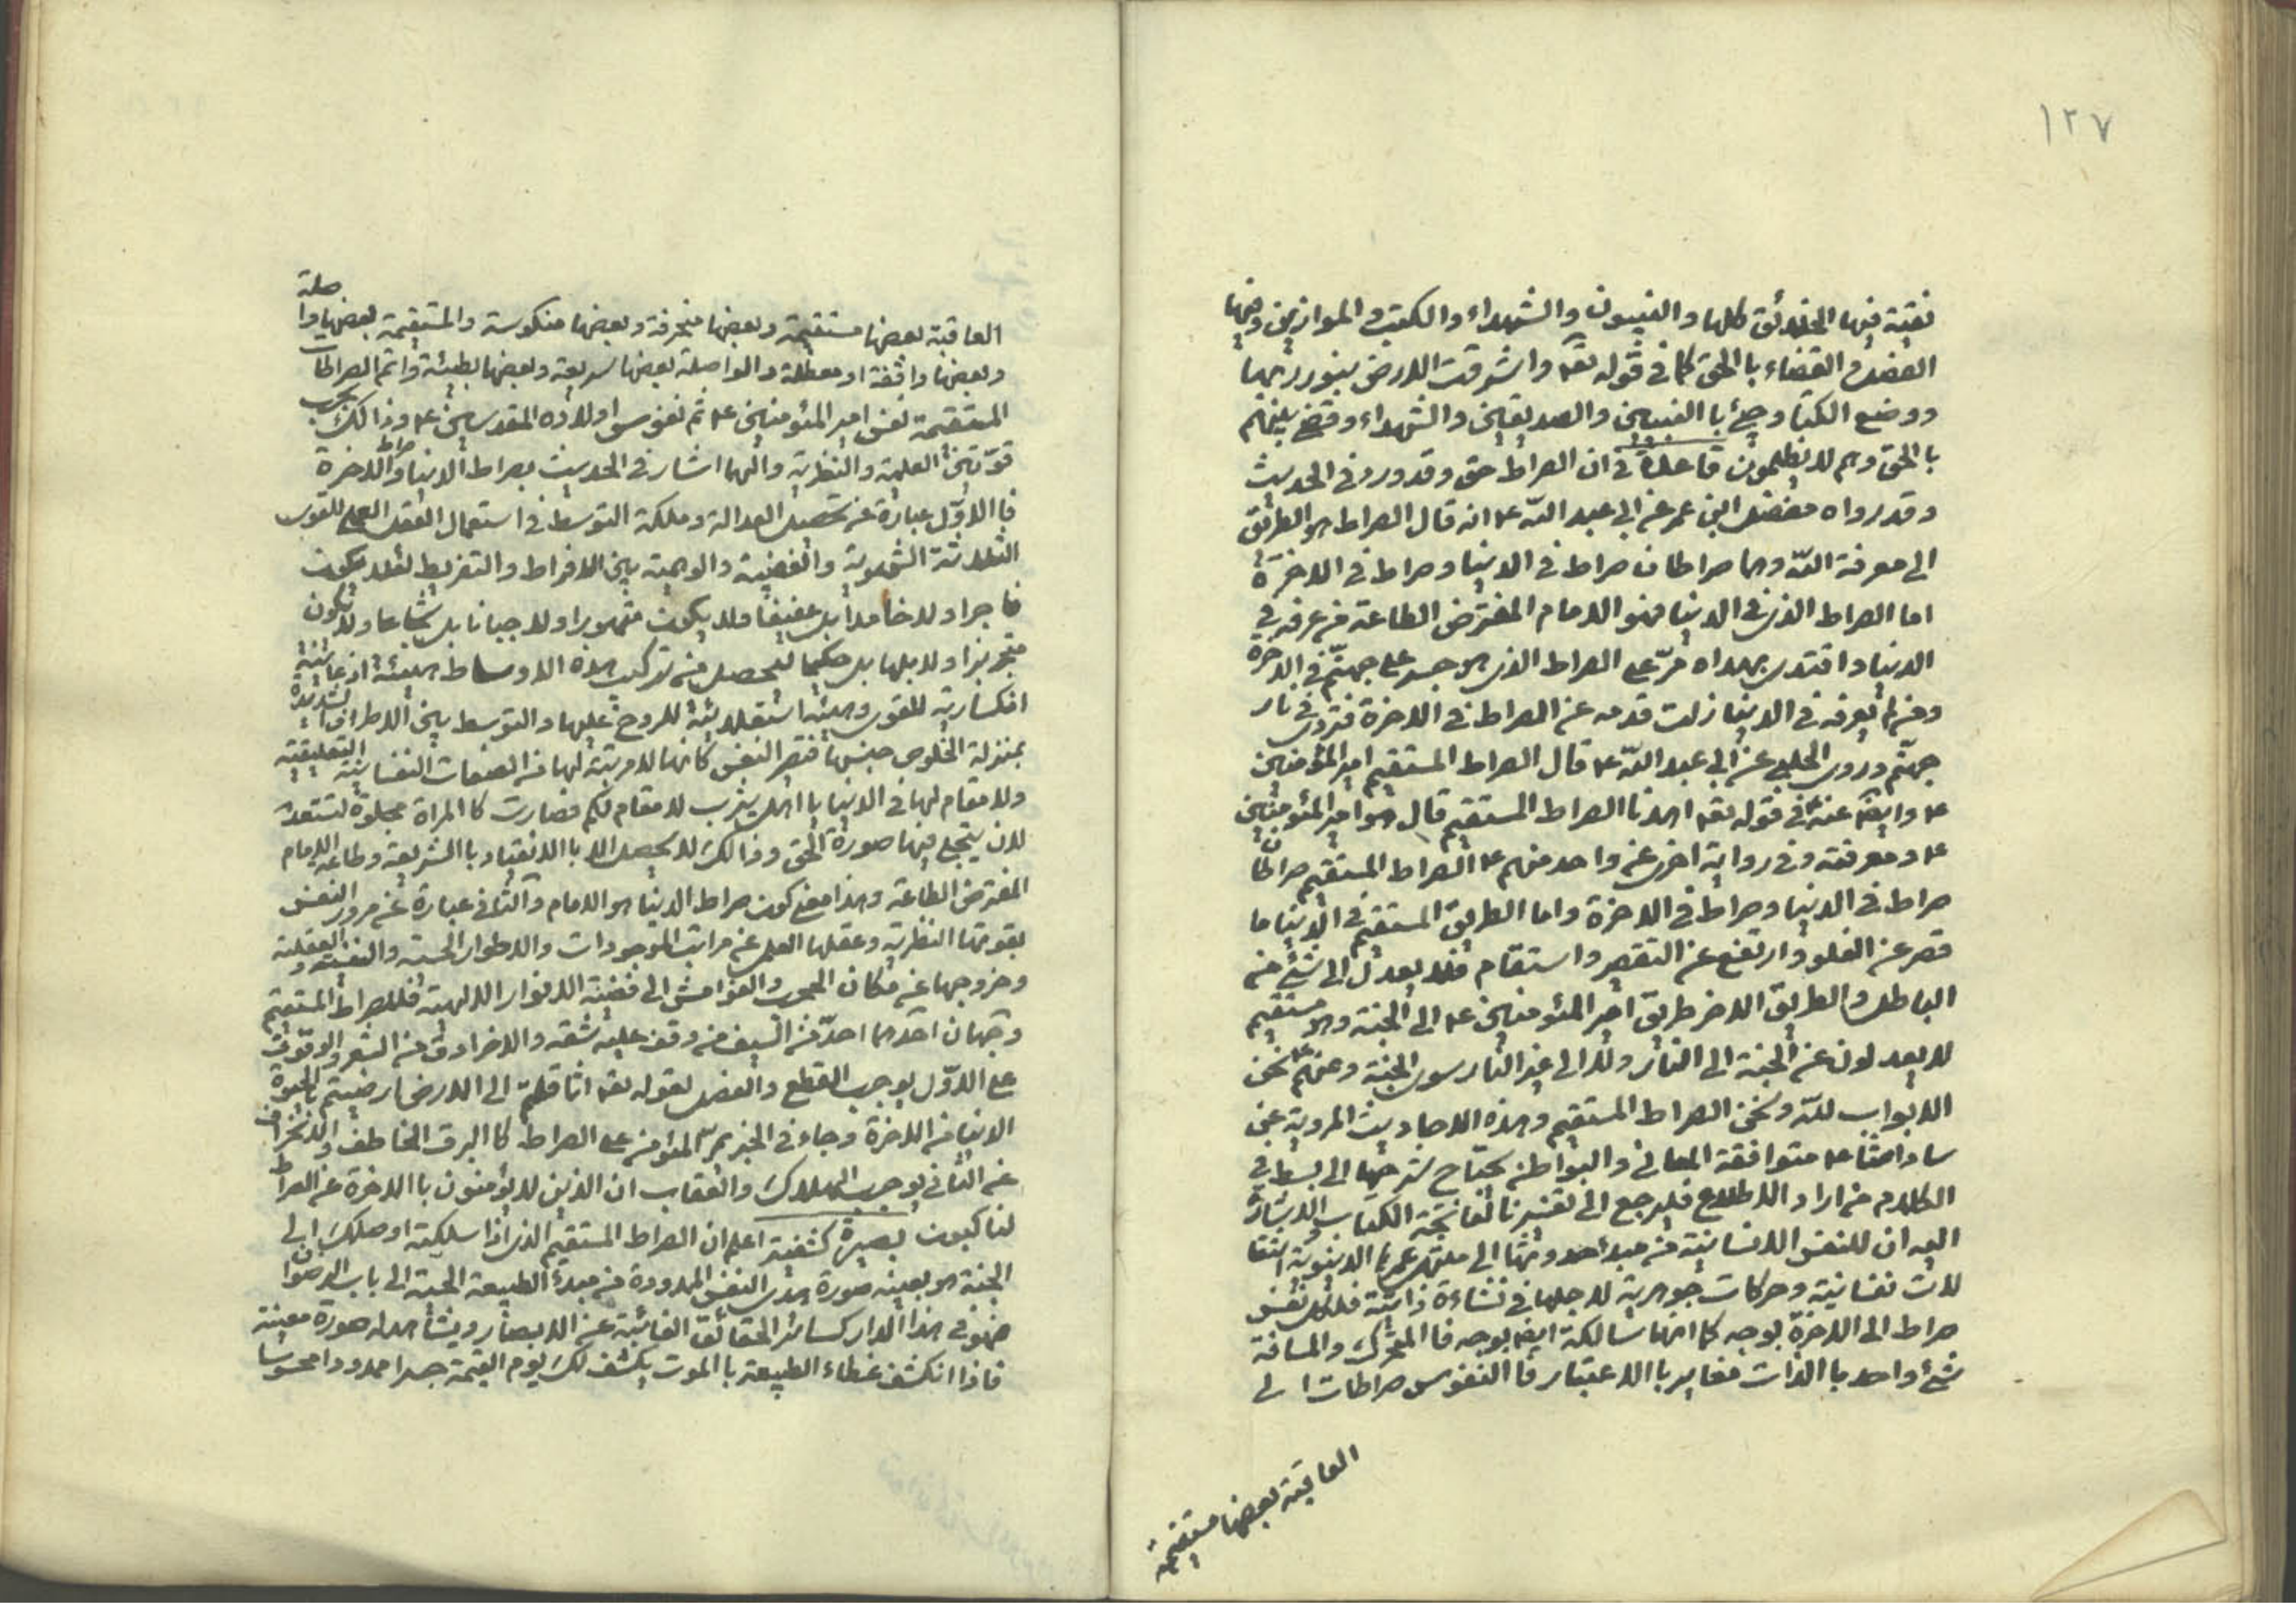 ١٢٧
فيها الخلائق كلها والنبيون والشهداء والكتب والموازين وفيها
الفصل والقضاء باالحق كما في قوله تعه واشرقت الارض بنور ربها
ووضع الكتاب وجئ باالنبيين والصديقين والشهداء وقضى بينهم
باالحق وهم لا يظلمون قاعدة في ان الصراط حق وقد ورد في الحديث
وقد رواه مفضل ابن عمر عن ابي عبد الله ع انه قال الصراط هو الطريق
الى معرفة الله وهما صراطان صراط في الدنيا وصراط في الاخرة
اما الصراط الذى في الدنيا فهو الامام المفترض الطاعة من عرفه في
الدنيا واقتدى بهداه مرّ على الصراط الذى هو جسر على جهنّم في الاخرة
ومن لم يعرفه في الدنيا زلت قدمه عن الصراط في الاخرة فتردى في نار
جهنّم وروى الحلبي عن ابي عبد الله ع قال الصراط المستقيم امير المؤمنين
ع وايضا عنه في قوله تعه اهدنا الصراط المستقيم قال هو امير المؤمنين
ع ومعرفته وفي رواية اخرى عن واحد منهم ع الصراط المستقيم صراطان
صراط في الدنيا وصراط في الاخرة واما الطريق المستقيم في الدنيا ما
قصر عن الغلو وارتفع عن التقصير واستقام فلا يعدل الى شئ من
الباطل والطريق الاخر طريق امير المؤمنين ع الى الجنة وهو مستقيم
لا يعدلون عن الجنة الى النار ولا الى غير النار سوى الجنة وعنهم ع نحن
الابواب لله ونحن الصراط المستقيم وهذه الاحاديث المروية عن
ساداتنا ع متوافقة المعاني والبواطن يحتاج شرحها الى بسط في
الكلام من اراد الاطلاع فليرجع الى تفسيرنا لفاتحة الكتاب والاشارة
اليه ان للنفس الانسانية من مبدء حدوثها الى منتهى عمرها الدنيوية انتقا
لات نفسانية وحركات جوهرية لاجلها في نشاءة ذاتية فلكل نفس
صراط الى الاخرة بوجه كما انها سالكة ايضا بوجه فا المتحرك والمسافة
شئ واحد باالذات مغاير باالاعتبار فا النفوس صراطات الى
العاقبة بعضها مستقيمة
العاقبة بعضها مستقيمة وبعضها منحرفة وبعضها منكوسة والمستقيمة بعضها واصلة
وبعضها واقفة او معطلة والواصلة بعضها سريعة وبعضها بطيئة واتم الصراطات
المستقيمة نفس امير المؤمنين ع ثم نفوس اولاده المقدسين ع وذالك بحسب
قوّتين العلمية والنظرية واليهما اشار في الحديث بصراط الدنيا وصراط الاخرة
فا الاوّل عبارة عن تحصيل العدالة وملكة التوسط في استعمال العقل العملي للقوى
الثلاثة الشهوية والغضبية والوهمية بين الافراط والتفريط لئلا يكون
فاجرا ولا خامدا بل عفيفا ولا يكون متهورا ولا جبانا بل شجاعا ولا يكون
متجربزا ولا ابلها بل حكيما لتحصل من تركيب هذه الاوساط هيئة اذعانية
انكسارية للقوى وهيئة استعلائية للروح عليها والتوسط بين الاطراف الشديدة
بمنزلة الخلوص عنها فتصير النفس كانها لا مرتبة لها من الصفات النفسانية التعليقية
ولا مقام لها في الدنيا يا اهل يثرب لا مقام لكم فصارت كا المراة مجلوة تستعد
لان يتجلى فيها صورة الحق وذالك لا يحصل الا باالانقياد باالشريعة وطاعة الامام
المفترض الطاعة وهذا معنى كون صراط الدنيا هو الامام والثاني عبارة عن مرور النفس
بقوتها النظرية وعقلها العملي عن مراتب الموجودات والاطوار الحسية والنفسية والعقلية
وخروجها عن مكان الحجب والغواشى الى فضية الانوار الالهية فللصراط المستقيم
وجهان احدهما احدّ من السيف من وقف عليه شقه والاخر ادق من الشعر والوقوف
على الاوّل يوجب القطع والفصل لقوله تعه اثاقلتم الى الارض ارضيتم باالحيوة
الدنيا من الاخرة وجاء في الخبر يمر المؤمن على الصراط كا البرق الخاطف والانحراف
عن الثاني يوجب الهلاك والعقاب ان الذين لا يؤمنون باالاخرة عن الصراط
لناكبون بصيرة كشفية اعلم ان الصراط المستقيم الذى اذا سلكته اوصلك الى
الجنة هو بعينه صورة هدى النفس الممدودة من مبدء الطبيعة الحسية الى باب الرضوان
فهو في هذا الدار كسائر الحقائق الغائبة عن الابصار ويشاهد له صورة معينة
فاذا انكشف غطاء الطبيعة باالموت يكشف لك يوم القيمة جسرا ممدودا محسوسا